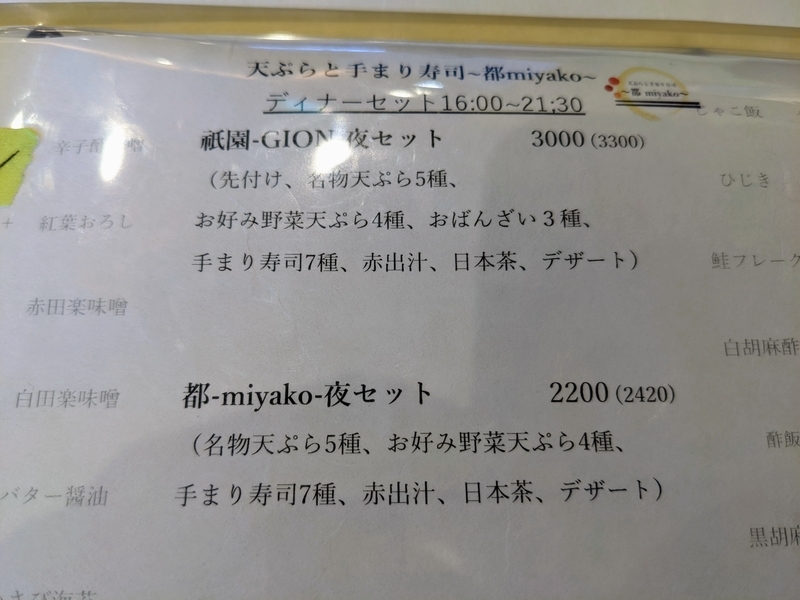 天ぷらと手まり寿司~都miyako~
~都 miyako~
ディナーセット16:00~21;30
しゃこ飯
祇園-GION-夜セット 3000(3300)
辛子酢味噌
(先付け、名物天ぷら5種、
ひじき
+ 紅葉おろし
お好み野菜天ぷら4種、おばんざい３種、
手まり寿司7種、赤出汁、日本茶、デザート)
鮭フレーク
赤田楽味噌
白胡麻酢
白田楽味噌
都-miyako-夜セット 2200(2420)
(名物天ぷら5種、お好み野菜天ぷら4種、
酢飯
バター醤油
手まり寿司7種、赤出汁、日本茶、デザート)
黒胡麻